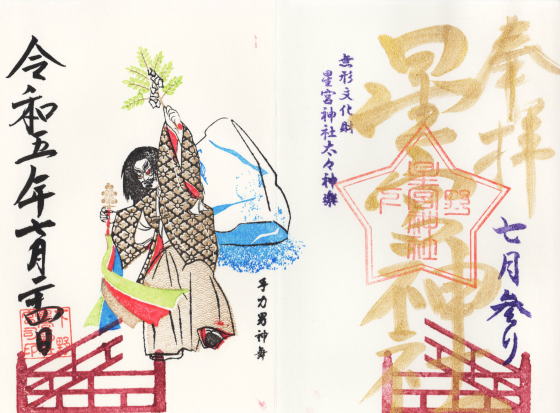 奉拝
七月参り
星宮神社
無形文化財
星宮神社太々神楽
手力男神舞
令和五年七月日